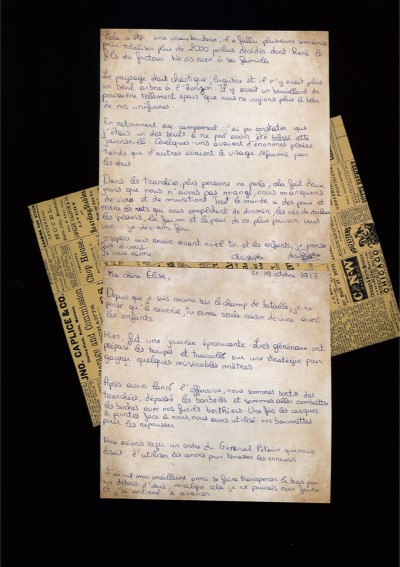 Cela a été une vraie boucherie, il a fallu plusieurs semaines
pour totaliser plus de 2000 poilus décédés dont René le
fils du facteur. Ne dis rien à sa famille.
Le paysage était chaotique, lugubre et il n'y avait plus
un seul arbre à l'horizon. Il y avait un brouillard de
poussière tellement épais que nous ne voyions plus le bleu
de nos uniformes.
En retournant au campement, j'ai pu constater que
j'étais un des seuls à ne pas avoir été blessé cette
journée-là. Quelques-uns avaient d'énormes plaies
tandis que d'autres avaient le visage déformé par
les obus.
Dans les tranchées plus personne ne parle, cela fait deux
jours que nous n'avons pas mangé, nous manquons
de vivres et de munitions. Tout le monde a des poux et
même les rats qui nous empêchent de dormir, les cris de douleur
les pleurs, la faim et la peur de ne plus pouvoir vous
voir, je deviens fou.
J'espère vous revoir avant noël toi et les enfants, je pense
fort à vous.
Je vous aime Christophe
Ma chère Élise, le 19 octobre 1917
Depuis que je suis arrivé sur le champ de bataille, je ne
pense qu'à revenir, tu es ma seule raison de vivre avec
les enfants.
Hier, fut une journée éprouvante. Les généraux ont
préparé les troupes et travaillé sur une stratégie pour
gagner quelques misérables mètres.
Après avoir lancé l'offensive, nous sommes sortis des
tranchées, dépassé les barbelés et sommes allés combattre
les boches avec nos fusils berthiers. Une fois les casques
à pointes face à nous, nous avons utilisé nos baïonnettes
pour les repousser.
Nous avions reçu un ordre du Général Pétain qui nous
disait d'utiliser les canons pour renverser les ennemis.
J'ai vu mon meilleur ami se faire transpercer le bras par
un débris d'obus, malgré cela je ne pouvais rien faire
et j'ai continué à avancer.
JNO. CAPLICE & CO.
Chop House
CHICAGO